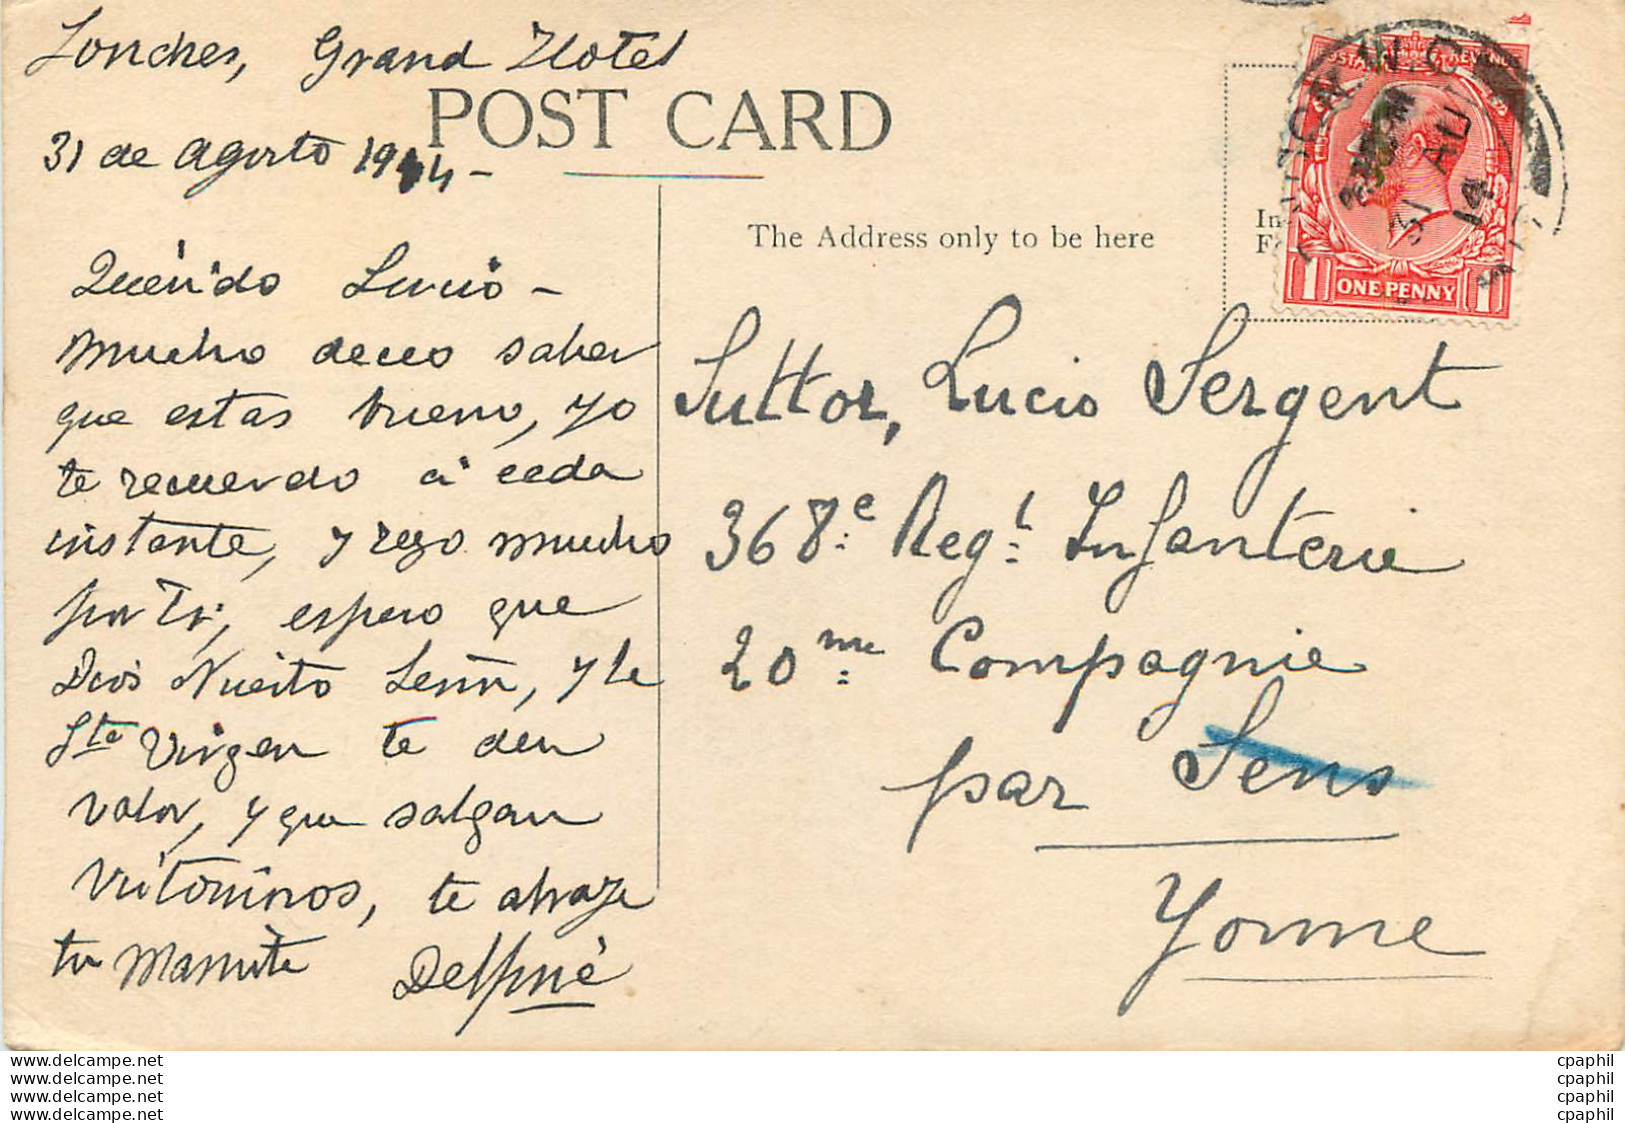 Londres, Grand Hotel
POST CARD
31 de agosto 1914-
Querido Lucio -
mucho deceo saber
que estas bueno, yo
te recuerdo a cada
instante, y rezo mucho
por ti, espero que
Dios Nuesto Señor, y la
Sta Virgen te den
valor, y que salgan
vitoriosos, te abraza
tu Mamita Delfine
The Address only to be here
In
Suttor, Lucio Sergent
368e Regt Infanterie
20me Compagnie
par Sens
Yonne
POSTAGE REVENUE
1 ONE PENNY 1
LONDON W.C
31 AU
14
www.delcampe.net
www.delcampe.net
www.delcampe.net
www.delcampe.net
cpaphil
cpaphil
cpaphil
cpaphil